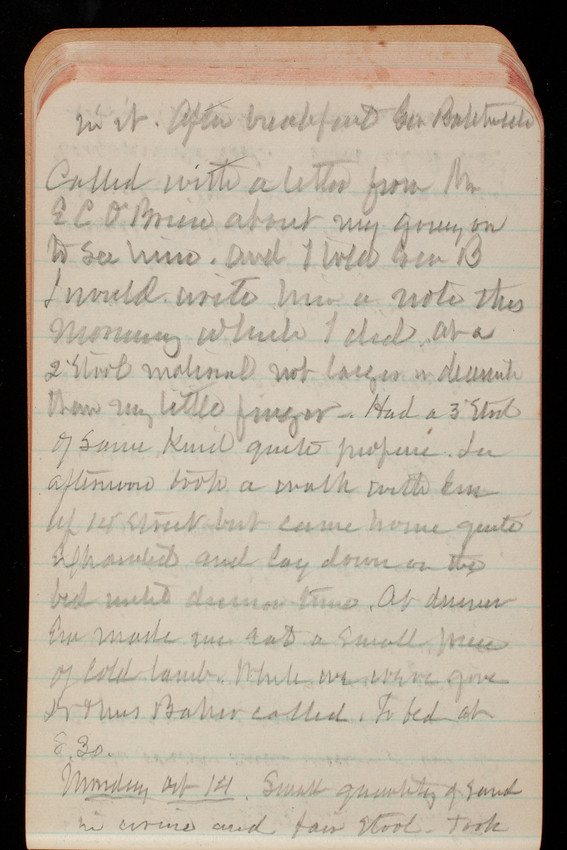 in it. After breakfast Gen
Called with a letter from Mr
E C O'Brien about my going on
to see him. And I told Gen B
I would write him a note this
Morning which I did. at a
2d Stool material not larger in diameter
than my little finger. Had a 3d Stool
of same kind quite profuse. In
afternoon took a walk with Em
up 14 Street but came home quite
Exhausted and lay down on the
bed until dinner time. At dinner
Em made me eat a small piece
of cold lamb. While we were gone
Baker called. To bed at
8.30.
Monday Oct 14. Small quantity of Sand
in urine and fair stool. Took